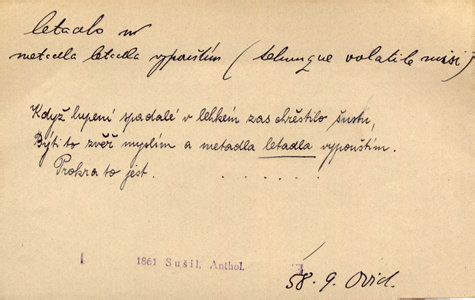 letadlo n
metadla létadla vypouštím (telumque volatile misi)
Když lupení spadalé v lehkém zas chřestilo šustu,
Býti to zvěř myslím a metadla letadla vypouštím.
Prokra to jest . . . . . .
1861 Sušil, Anthol.
58. 9. Ovid.